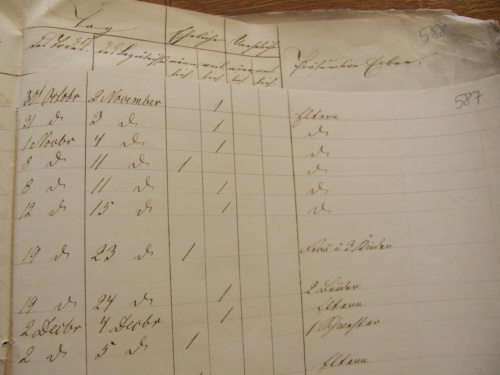 588
Tag
des Todes. des Begräbnisses
männlich weiblich männlich weiblich
587
30 Octobr 2 November 1 Eltern
31 d 3 d 1 d
1 Novbr 4 d 1 d
8 d 11 d 1 d
8 d 11 d 1 d
12 d 15 d 1 d
19 d 23 d 1 Frau u 3 Kinder
19 d 24 d 1 2 Brüder
2 Decbr 4 Decbr 1 Eltern
2 d 5 d 1 1 Schwester
Eltern